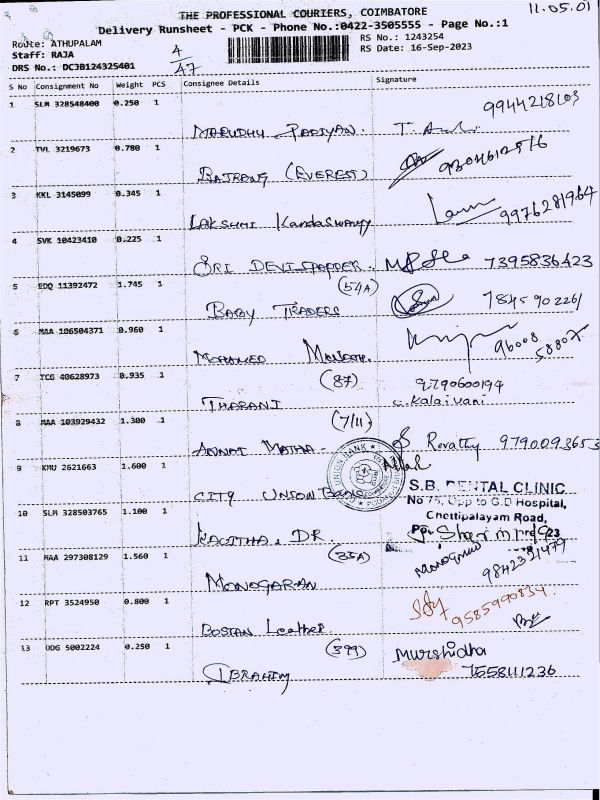 11.05.01
THE PROFESSIONAL COURIERS, COIMBATORE
Delivery Runsheet - PCK - Phone No.:0422-3505555 - Page No.:1
Route: ATHUPALAM
RS No.: 1243254
Staff: RAJA
4/47
RS Date: 16-Sep-2023
DRS No.: DCJB124325401
S No Consignment No Weight PCS Consignee Details Signature
1 SLM 328548400 0.250 1
MARUDHU PANDIYAN. 9944218103
2 TVL 3219673 0.780 1
BAJRANG (EVEREST)
3 KKL 3145099 0.345 1
LAKSHMI KandaSwamy 9976281964
4 SVK 10423410 0.225 1
SRI DEVI 7395836423
5 EDQ 11392472 1.745 1 (54A)
BABY TRADERS 7845902261
6 MAA 106504371 0.960 1
MOHAMED 96008 58807
7 TCG 40628973 0.935 1 (87) 9790600194
THARANI C. Kalaivani
8 MAA 103929432 1.300 1 (7/11)
ANNAI MATHA - Revathy 9790093653
9 KMU 2621663 1.600 1
CITY UNION BANK
UNION BANK
10 SLM 328503765 1.100 1
S.B. DENTAL CLINIC
No 75, Opp to G.D Hospital,
Chettipalayam Road,
DR.
11 MAA 297308129 1.560 1 (35A)
MONOGARAN 9842321479
12 RPT 3524950 0.800 1
BOSTAN Leather. 9585990834
13 ODG 5002224 0.250 1 (399)
IBRAHIM Murshidha
7558111236